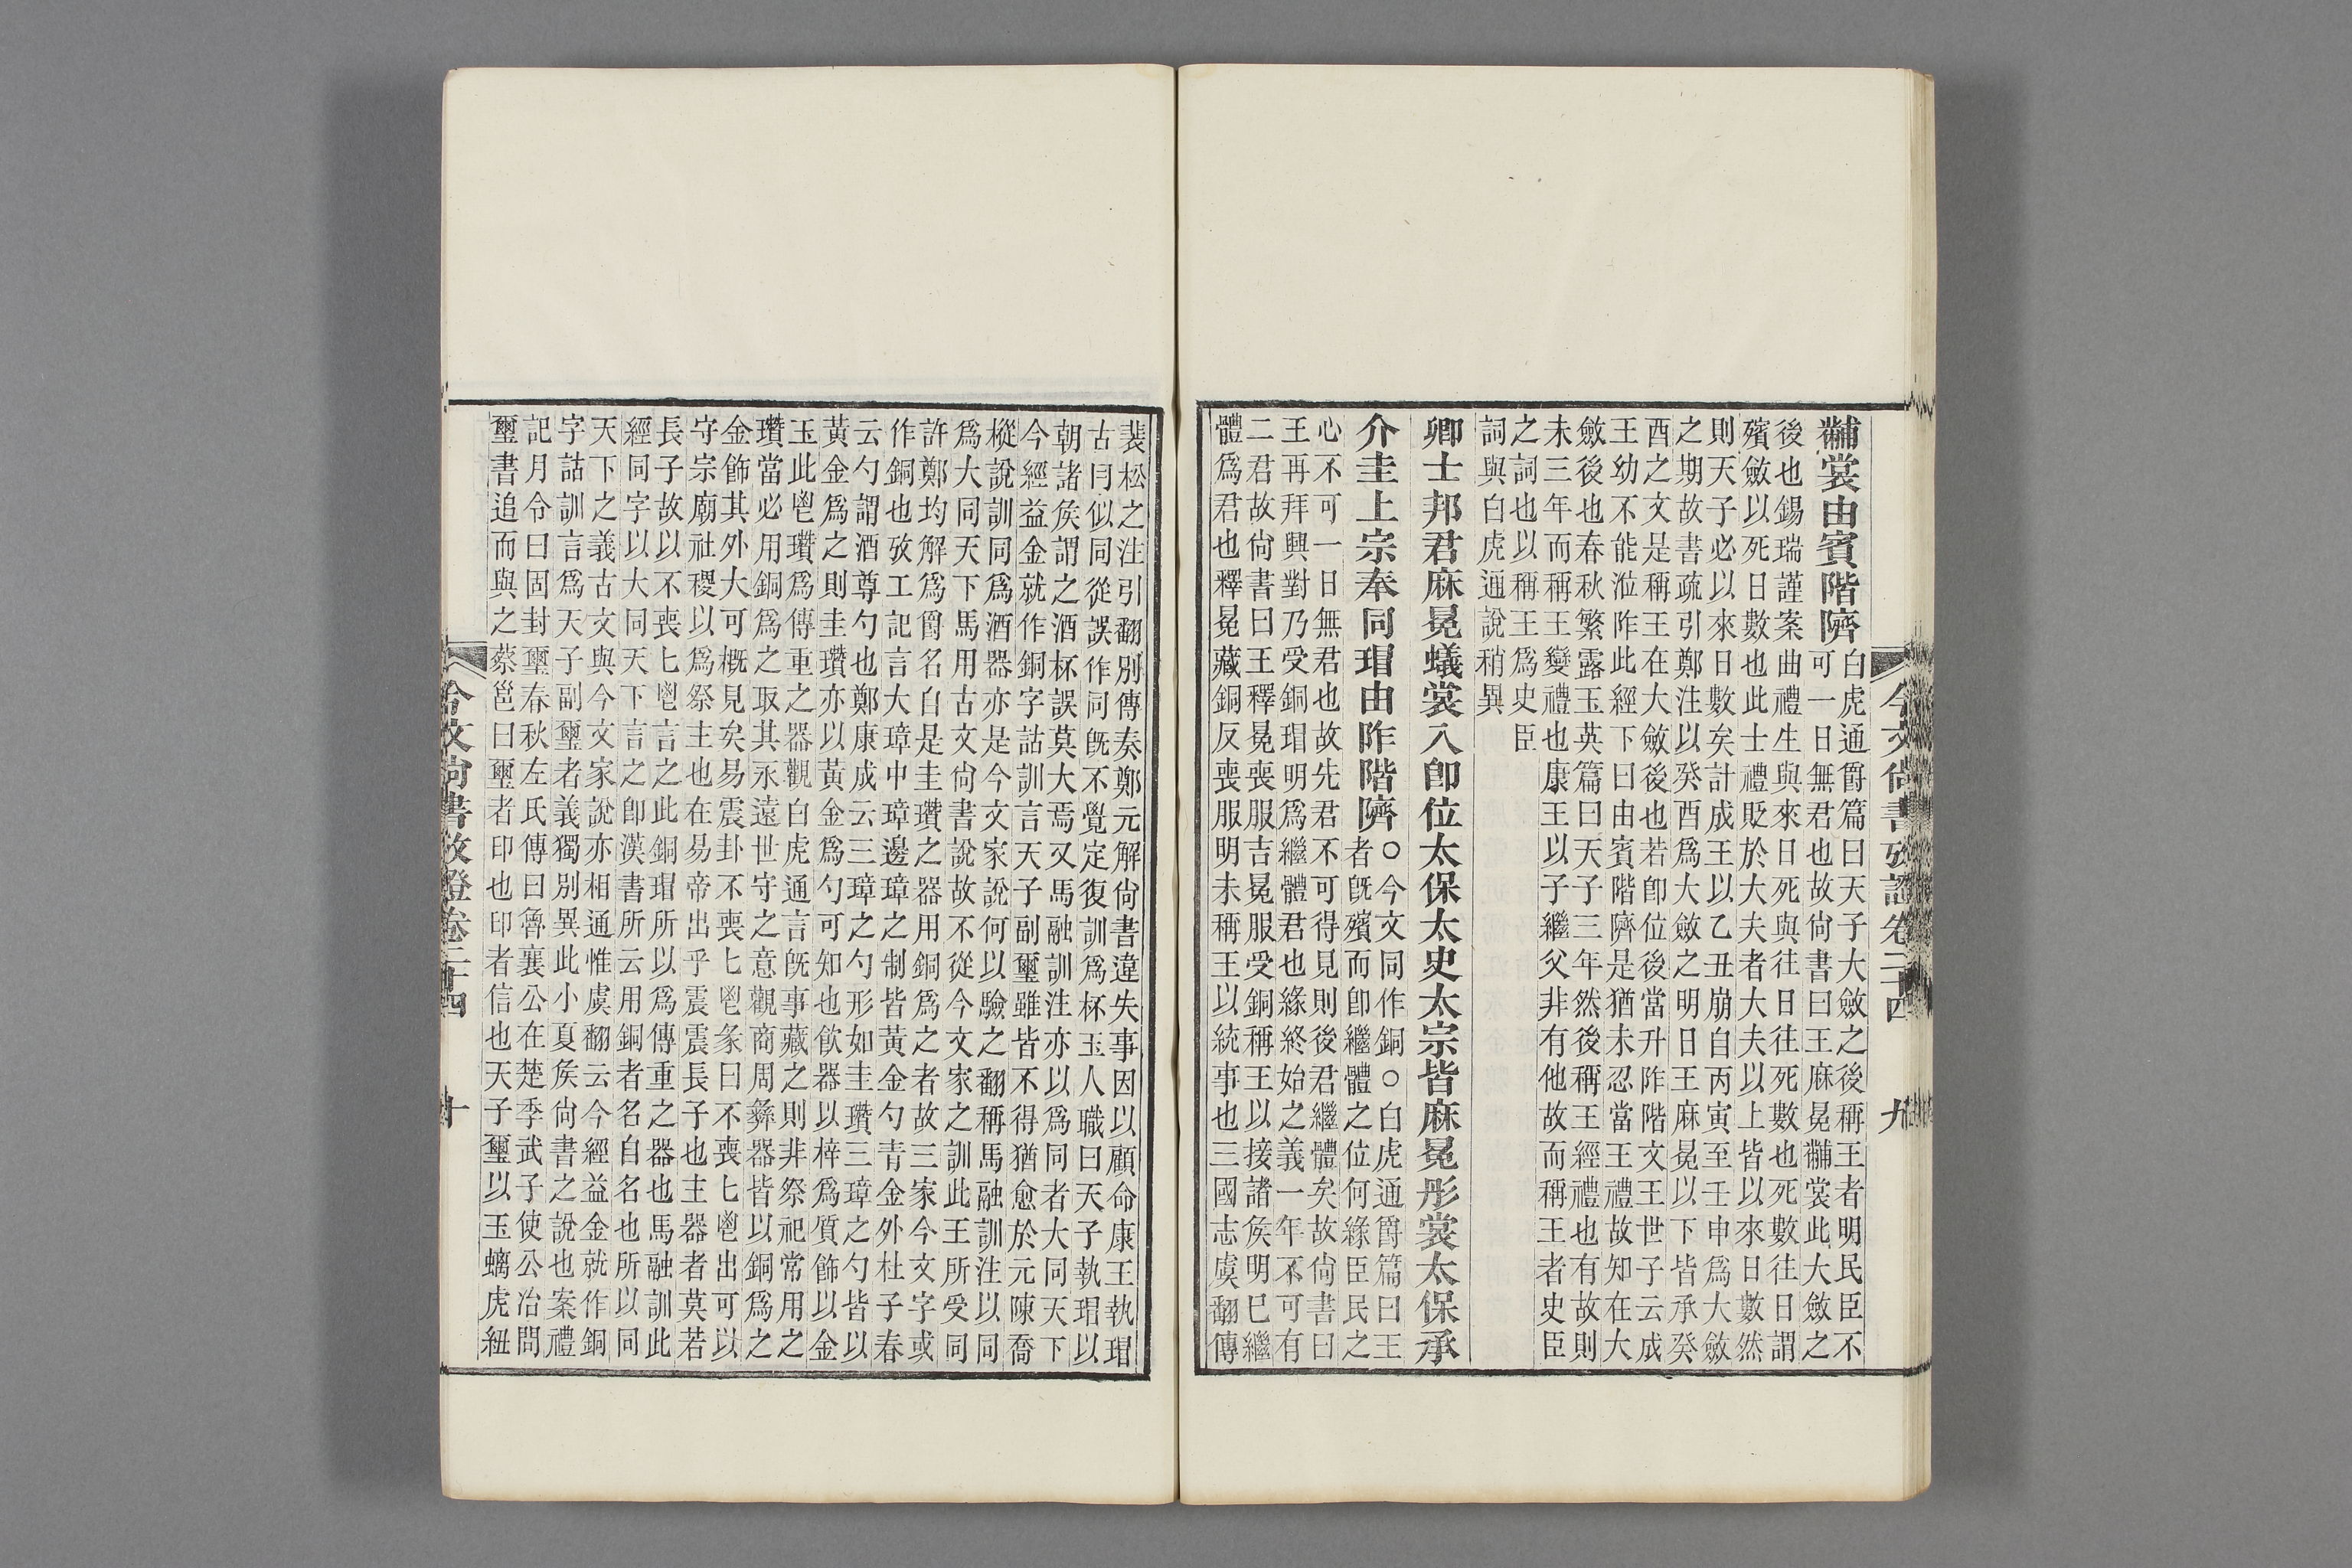 黼裳由賓階隮白虎通爵篇曰天子大斂之後稱王者明民臣不
可一日無君也故尙書曰王麻冕黼裳此大斂之
後也錫瑞謹案曲禮生與來日死與往日往死數也死數往日謂
殯斂以死日數也此士禮貶於大夫者大夫以上皆以來日數然
則天子必以來日數矣計成王以乙丑崩自丙寅至壬申爲大斂
之期故書疏引鄭注以癸酉爲大斂之明日王麻冕以下皆承癸
酉之文是稱王在大斂後也若卽位後當升阼階文王世子云成
王幼不能涖阼此經下曰由賓階隮是猶未忍當王禮故知在大
斂後也春秋繁露玉英篇曰天子三年然後稱王經禮也有故則
未三年而稱王變禮也康王以子繼父非有他故而稱王者史臣
之詞也以稱王爲史臣
詞與白虎通說稍異
卿士邦君麻冕蟻裳入卽位太保太史太宗皆麻冕彤裳太保承
介圭上宗奉同瑁由阼階隮○今文同作銅○白虎通爵篇曰王
者旣殯而卽繼體之位何緣臣民之
心不可一日無君也故先君不可得見則後君繼體矣故尙書曰
王再拜興對乃受銅瑁明爲繼體君也緣終始之義一年不可有
二君故尙書曰王釋冕喪服吉冕服受銅稱王以接諸侯明已繼
體爲君也釋冕藏銅反喪服明未稱王以統事也三國志虞翻傳
今文尙書攷證卷二十四　九
裴松之注引翻別傳奏鄭元解尙書違失事因以顧命康王執瑁
古冃似同從誤作同旣不覺定復訓爲杯玉人職曰天子執瑁以
朝諸侯謂之酒杯誤莫大焉又馬融訓注亦以爲同者大同天下
今經益金就作銅字詁訓言天子副璽雖皆不得猶愈於元陳喬
樅說訓同爲酒器亦是今文家說何以驗之翻稱馬融訓注以同
爲大同天下馬用古文尙書說故不從今文家之訓此王所受同
許鄭均解爲爵名自是圭瓚之器用銅爲之者故三家今文字或
作銅也攷工記言大璋中璋邊璋之制皆黃金勺青金外杜子春
云勺謂酒尊勺也鄭康成云三璋之勺形如圭瓚三璋之勺皆以
黃金爲之則圭瓚亦以黃金爲勺可知也飮器以梓爲質飾以金
玉此鬯瓚爲傳重之器觀白虎通言旣事藏之則非祭祀常用之
瓚當必用銅爲之取其永遠世守之意觀商周彝器皆以銅爲之
金飾其外大可槪見矣易震卦不喪匕鬯彖曰不喪匕鬯出可以
守宗廟社稷以爲祭主也在易帝出乎震震長子也主器者莫若
長子故以不喪匕鬯言之此銅瑁所以爲傳重之器也馬融訓此
經同字以大同天下言之卽漢書所云用銅者名自名也所以同
天下之義古文與今文家說亦相通惟虞翻云今經益金就作銅
字詁訓言爲天子副璽者義獨別異此小夏侯尙書之說也案禮
記月令曰固封璽春秋左氏傳曰魯襄公在楚季武子使公冶問
璽書追而與之蔡邕曰璽者印也印者信也天子璽以玉螭虎紐
今文尙書攷證卷二十四　十